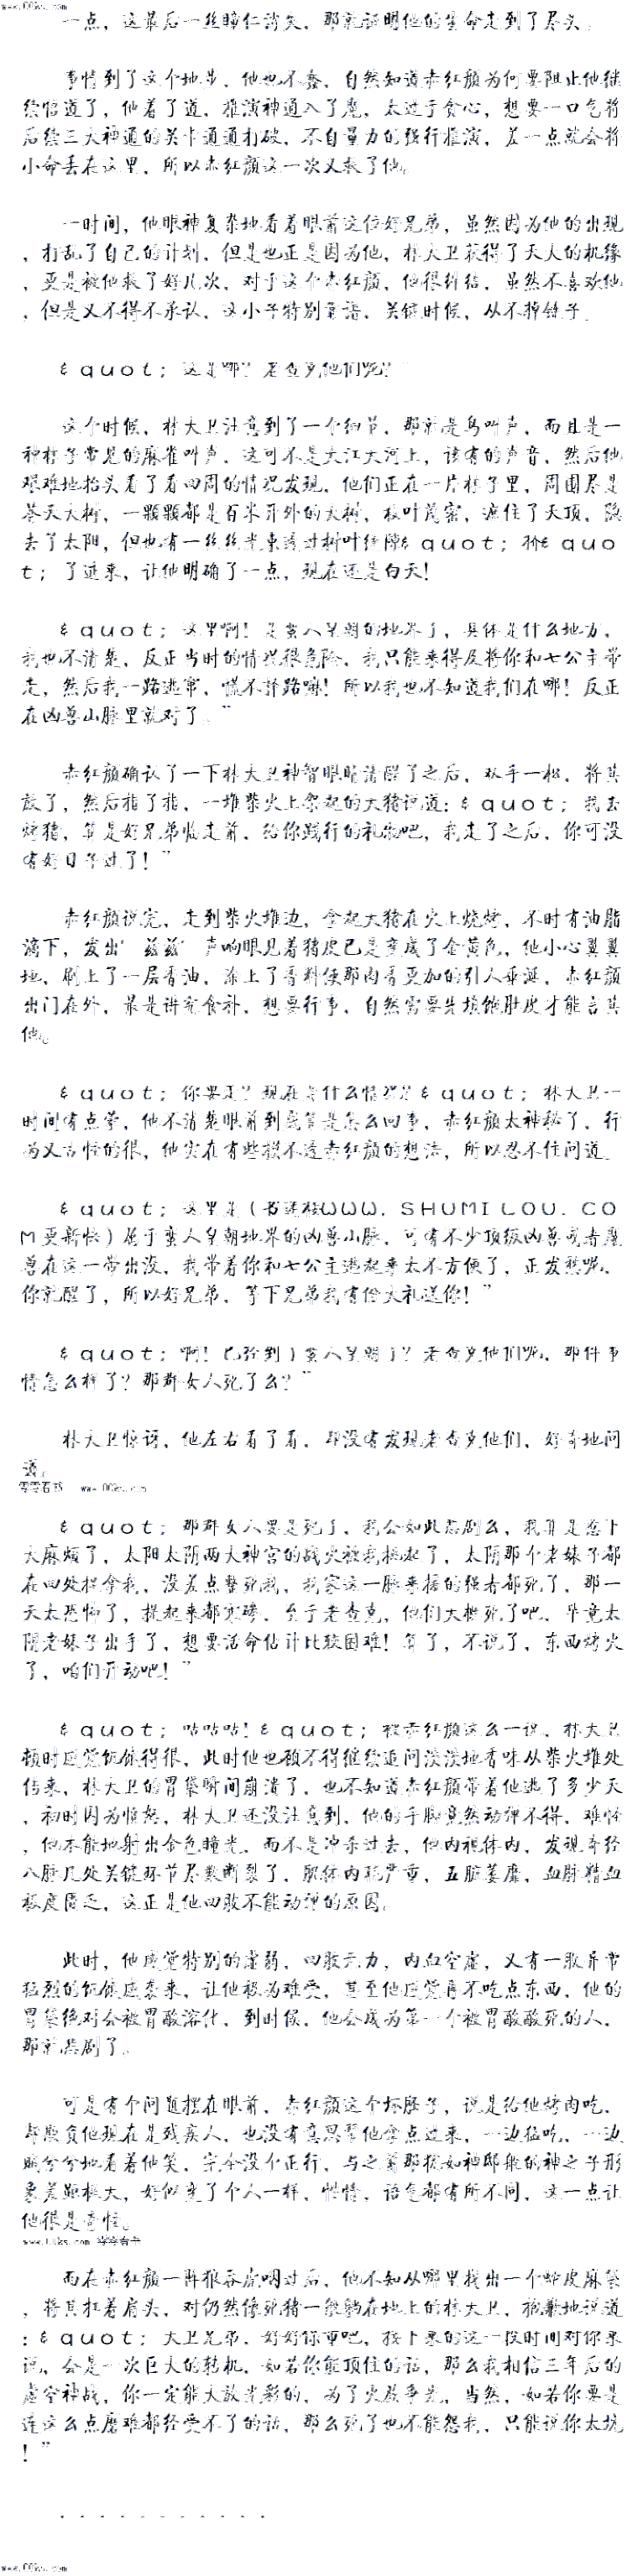 www.00ks.com
一点，这最后一丝瞳仁消失，那就证明他的生命走到了尽头。
事情到了这个地步，他也不蠢，自然知道赤红颜为何要阻止他继
续悟道了，他着了道，推演神通入了魔，太过于贪心，想要一口气将
后续三大神通的关卡通通打破，不自量力的强行推演，差一点就会将
小命丢在这里，所以赤红颜这一次又救了他。
一时间，他眼神复杂地看着眼前这位好兄弟，虽然因为他的出现
，打乱了自己的计划，但是也正是因为他，林大卫获得了天大的机缘
，更是被他救了好几次，对于这个赤红颜，他很纠结，虽然不喜欢他
，但是又不得不承认，这小子特别靠谱，关键时候，从不掉链子。
&quot;这是哪？老查克他们呢？”
这个时候，林大卫注意到了一个细节，那就是鸟叫声，而且是一
种林子常见的麻雀叫声，这可不是大江大河上，该有的声音，然后他
艰难地抬头看了看四周的情况发现，他们正在一片林子里，周围尽是
苍天大树，一颗颗都是百米开外的大树，枝叶茂密，遮住了天顶，隐
去了太阳，但也有一丝丝光束透过树叶缝隙&quot;挤&quo
t;了进来，让他明确了一点，现在还是白天！
&quot;这里啊！是蛮人皇朝的地界了，具体是什么地方，
我也不清楚，反正当时的情况很危险，我只能来得及将你和七公主带
走，然后我一路逃窜，慌不择路嘛！所以我也不知道我们在哪！反正
在凶兽山脉里就对了。”
赤红颜确认了一下林大卫神智眼睛清醒了之后，双手一松，将其
放了，然后指了指，一堆柴火上架起的大猪说道：&quot;我去
烤猪，算是好兄弟临走前，给你践行的礼物吧，我走了之后，你可没
有好日子过了！”
赤红颜说完，走到柴火堆边，拿起大猪在火上烧烤，不时有油脂
滴下，发出’兹兹’声响眼见着猪皮已是变成了金黄色，他小心翼翼
地，刷上了一层香油，涂上了香料使那肉香更加的引人垂涎，赤红颜
出门在外，最是讲究食补，想要行事，自然需要先填饱肚皮才能言其
他。
&quot;你要走？现在是什么情况？&quot;林大卫一
时间有点蒙，他不清楚眼前到底算是怎么回事，赤红颜太神秘了，行
为又古怪的很，他实在有些摸不透赤红颜的想法，所以忍不住问道。
&quot;这里是（书迷楼WWW．SHUMILOU．CO
M更新快）属于蛮人皇朝地界的凶兽山脉，可有不少顶级凶兽或者魔
兽在这一带出没，我带着你和七公主逃起来太不方便了，正发愁呢，
你就醒了，所以好兄弟，等下兄弟我有份大礼送你！”
&quot;啊！已经到了蛮人皇朝了？老查克他们呢，那件事
情怎么样了？那群女人死了么？”
林大卫惊讶，他左右看了看，却没有发现老查克他们，好奇地问
道。
零零看书 www.00ks.com
&quot;那群女人要是死了，我会如此悲剧么，我算是惹下
大麻烦了，太阳太阴两大神宫的战火被我挑起了，太阴那个老妹子都
在四处捉拿我，没差点整死我，我家这一脉来接的强者都死了，那一
天太恐怖了，提起来都寒碜，至于老查克，他们大概死了吧，毕竟太
阴老妹子出手了，想要活命估计比较困难！算了，不说了，东西烤火
了，咱们开动吧！”
&quot;咕咕咕！&quot;被赤红颜这么一说，林大卫
顿时感觉饥饿得很，此时他也顾不得继续追问淡淡地香味从柴火堆处
传来，林大卫的胃袋瞬间崩溃了，也不知道赤红颜带着他逃了多少天
，初时因为愤怒，林大卫还没注意到，他的手脚竟然动弹不得，难怪
，他本能地射出金色瞳光，而不是冲杀过去，他内视体内，发现奇经
八脉几处关键环节尽数断裂了，肌体内耗严重，五脏萎靡，血脉精血
极度匮乏，这正是他四肢不能动弹的原因。
此时，他感觉特别的虚弱，四肢无力，内血空虚，又有一股异常
猛烈的饥饿感袭来，让他极为难受，甚至他感觉再不吃点东西，他的
胃袋绝对会被胃酸溶化，到时候，他会成为第一个被胃酸酸死的人，
那就悲剧了。
可是有个问题摆在眼前，赤红颜这个坏胚子，说是给他烤肉吃，
却欺负他现在是残疾人，也没有意思帮他拿点过来，一边猛吃，一边
贱兮兮地看着他笑，完全没个正行，与之前那犹如神邸般的神之子形
象差距极大，好似变了个人一样，性情，语气都有所不同，这一点让
他很是奇怪。
www.00ks.com 零零看书
而在赤红颜一阵狼吞虎咽过后，他不知从哪里找出一个蛇皮麻袋
，将其扛着肩头，对仍然像死猪一般躺在地上的林大卫，抱歉地说道
：&quot;大卫兄弟，好好保重吧，接下来的这一段时间对你来
说，会是一次巨大的转机，如若你能顶住的话，那么我相信三年后的
虚空神战，你一定能大放光彩的，为了火族争光，当然，如若你要是
连这么点磨难都经受不了的话，那么死了也不能怨我，只能说你太坑
！”
．．．．．．．．．．．
www.00ks.com